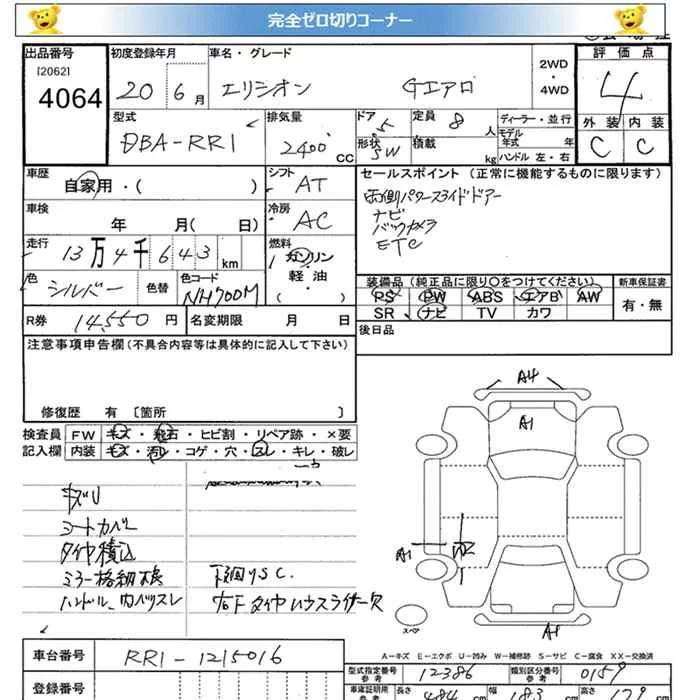 完全ゼロ切りコーナー
出品番号 初度登録年月 車名・グレード 2WD・4WD 評価点
[2062]
4064 20 6月 エリシオン Gエアロ 4
型式 排気量 ドア 5 定員 8人 ディーラー・並行 外装 内装
DBA-RR1 2400cc 形状 SW 積載 kg モデル年式 年 ハンドル 左・右 C C
車歴 シフト セールスポイント(正常に機能するものに限ります)
自家用・( ) AT 両側パワースライドドアー
車検 冷房 ナビ
年 月( 日) AC バックカメラ
走行 燃料 ETC
13万4千643km ガソリン
軽・油
( )
色 色替 色コード 装備品(純正品に限り○をつけてください) 新車保証書
シルバー NH700M PS PW ABS エアB AW 有・無
SR ナビ TV カワ
R券 14,550円 名変期限 月 日 後日品
注意事項申告欄(不具合内容等は具体的に記入して下さい)
修復歴 有 [箇所 ]
検査員 FW キズ・飛石・ヒビ割・リペア跡・×要
記入欄 内装 キズ・汚レ・コゲ・穴・スレ・キレ・破レ
キズU
シートカバー
タイヤ積込
ミラー格納不良 下回りSC.
ハンドル、内バリスレ 右Fタイヤハウスライナー欠
A4
A1
A1
A1
スペア
A-キズ E-エクボ U-凹み W-補修跡 S-サビ C-腐食 XX-交換済
車台番号 RR1-1215016
型式指定番号 参考 12386 類別区分番号 参考 0159
登録番号
車庫証明用 参考 長さ 484cm 幅 183cm 高さ 179cm